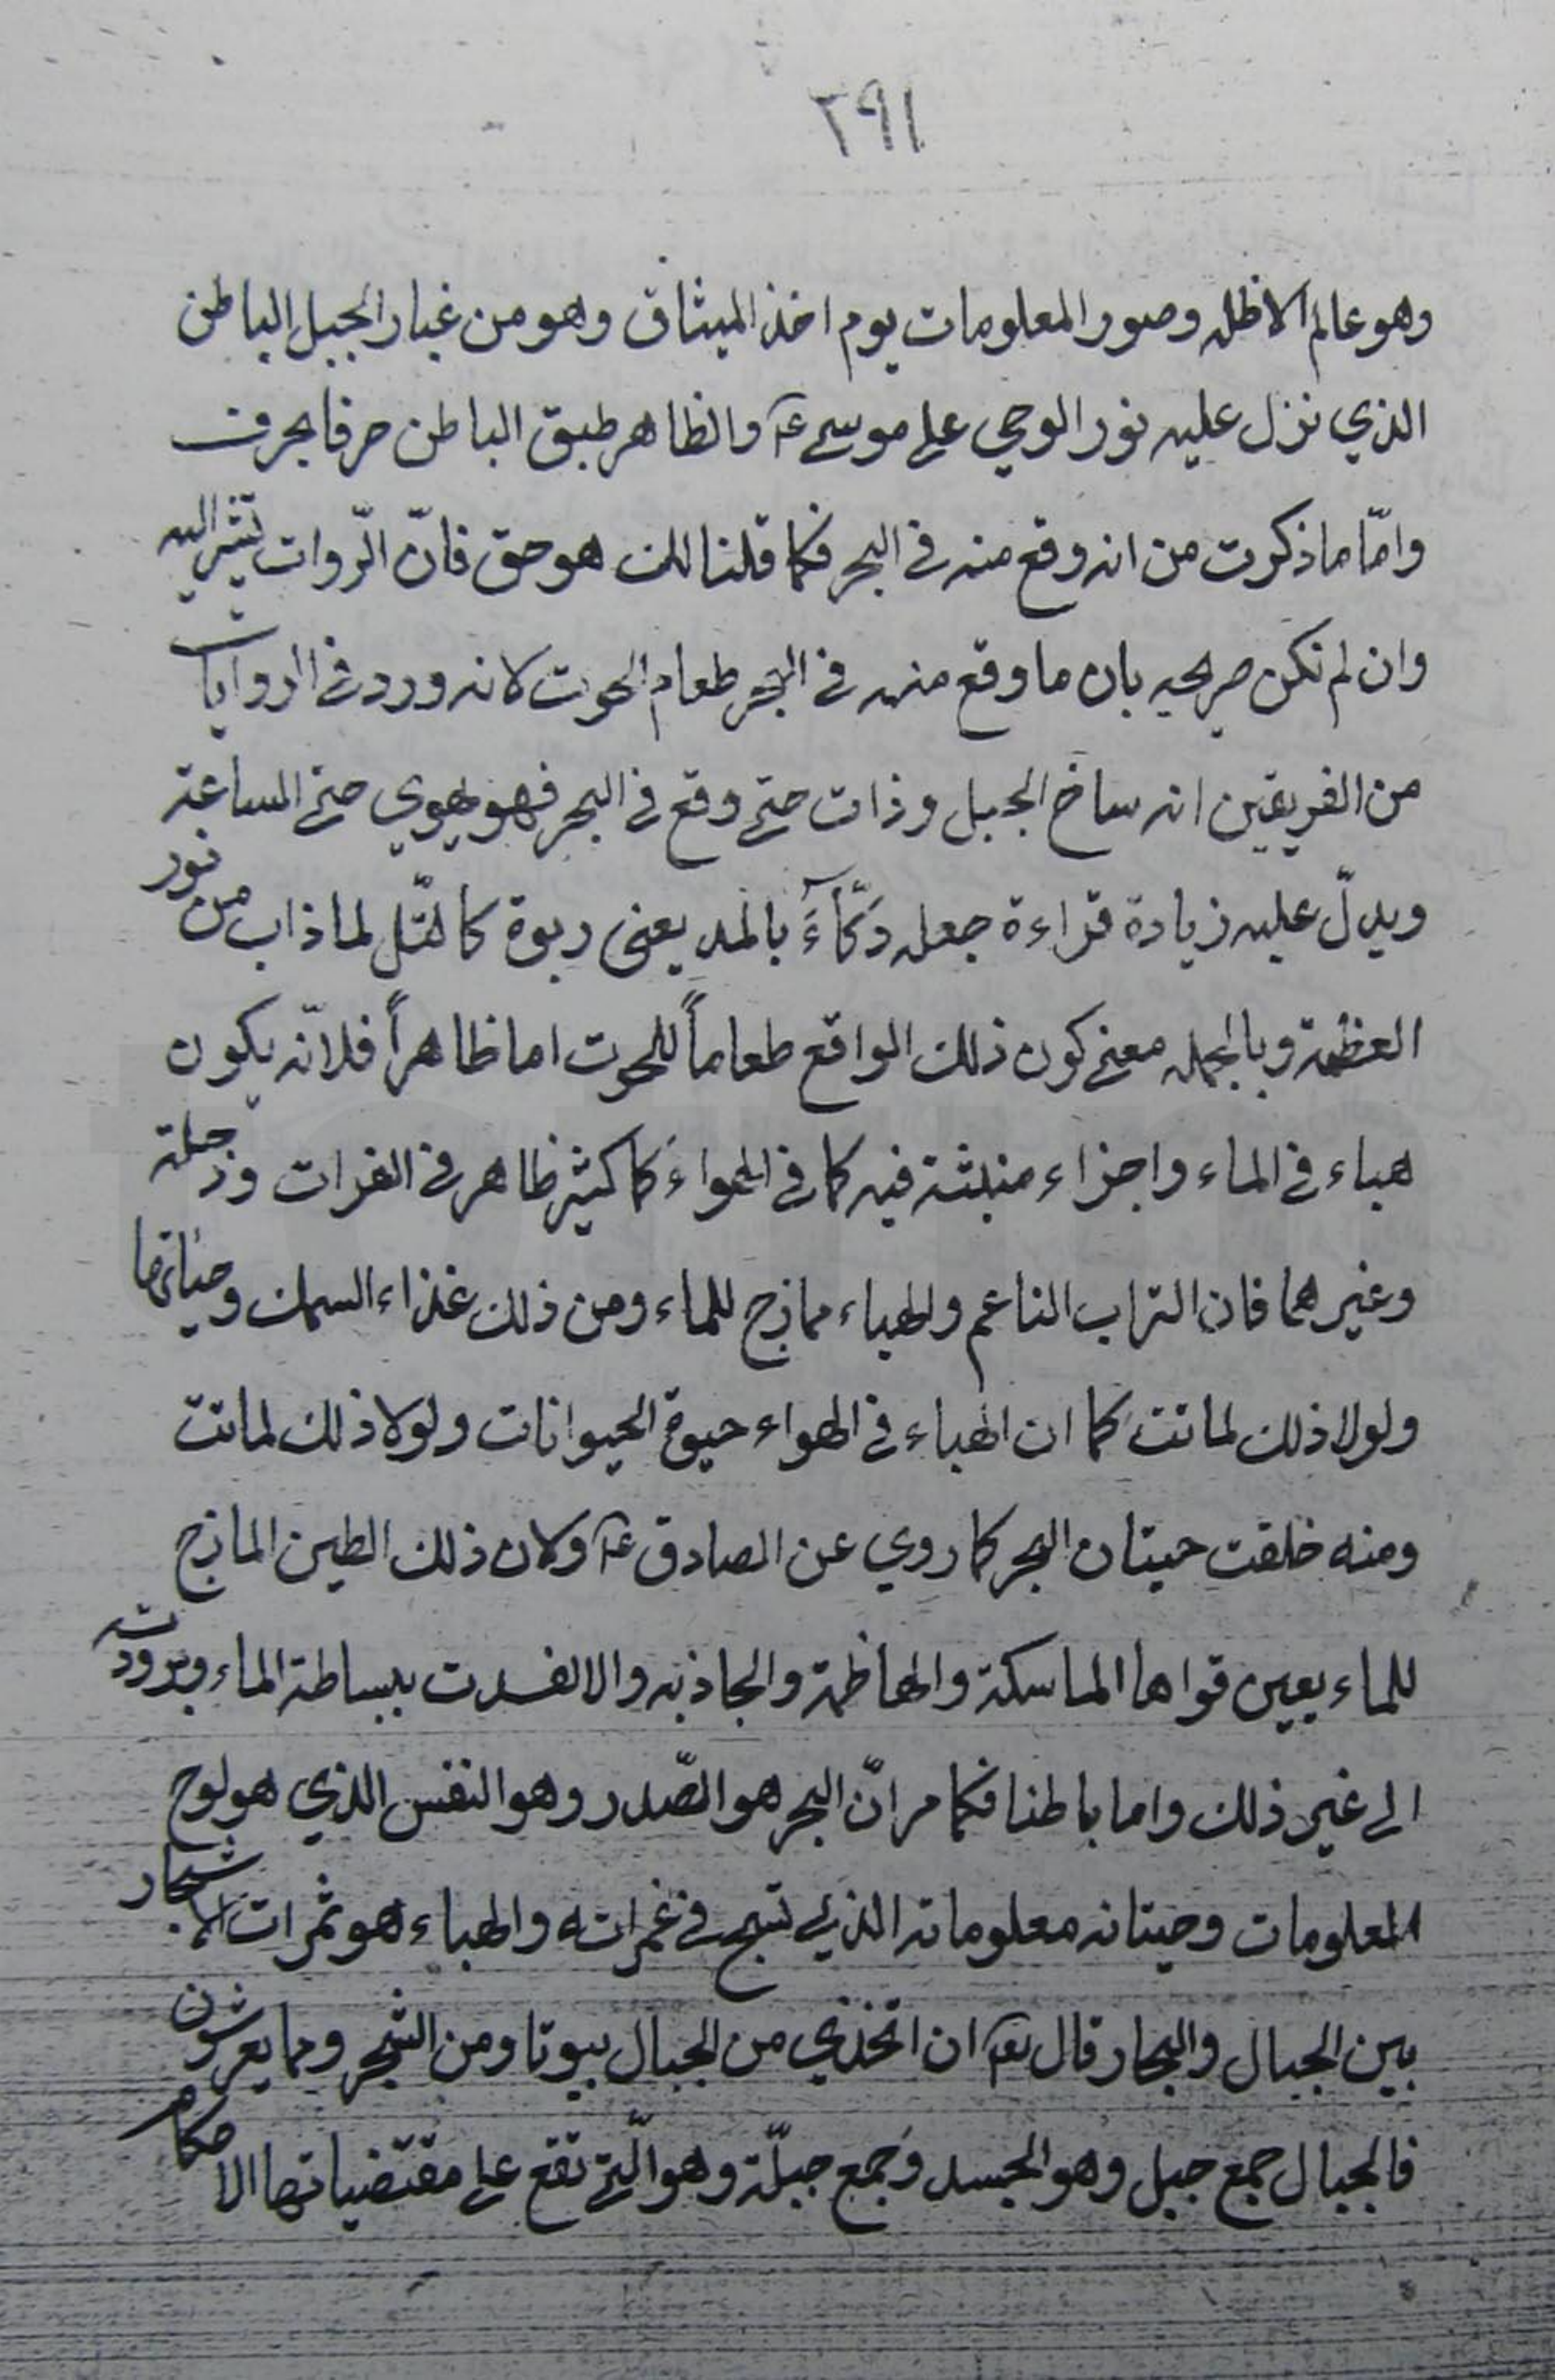 ٢٩١
وهو عالم الاظله وصور المعلومات يوم اخذ الميثاق وهو من غبار الجبل الباطن
الذي نزل عليه نور الوحي على موسى عۤ والظاهر طبق الباطن حرفا بحرف
وامّا ما ذكرت من انه وقع منه في البحر فكما قلنا لك هو حق فانّ الرّوات تشير اليه
وان لم تكن صريحه بان ما وقع منه في البحر طعام الحوت لانه ورد في الروايات
من الفريقين انه ساخ الجبل وذات حتى وقع في البحر فهو يهوي حتى الساعة
ويدلّ عليه زيادة قراءة جعله دَكّاۤءَ بالمد يعنى ربوة كالتّل لما ذاب من نور
العظمة وبالجمله معنى كون ذلك الواقع طعاماً للحوت اما ظاهراً فلانّه يكون
هباء في الماء واجزاء منبثة فيه كما في الهواء كما كثير ظاهر في الفرات ودجلة
وغيرهما فان التراب الناعم والهباء مازج للماء ومن ذلك غذاء السمك وحياتها
ولولا ذلك لماتت كما ان الهباء في الهواء حيوة الحيوانات ولولا ذلك لماتت
ومنه خلقت حيتان البحر كما روي عن الصادق عۤ ولان ذلك الطين المازج
للماء يعين قواها الماسكة والهاظمة والجاذبه والا لفسدت ببساطة الماء وبرودته
الى غير ذلك واما باطنا فكما مر انّ البحر هو الصّدر وهو النفس الذي هو لوح
المعلومات وحيتانه معلوماته الذي تسبح في غمراته والهباء هو ثمرات الاشجار
بين الجبال والبحار قال تعۤ ان اتخذي من الجبال بيوتا ومن الشجر ومما يعرشون
فالجبال جمع جبل وهو الجسد وَجمع جبلّة وهو الّتي تقع على مقتضياتها الاحكام